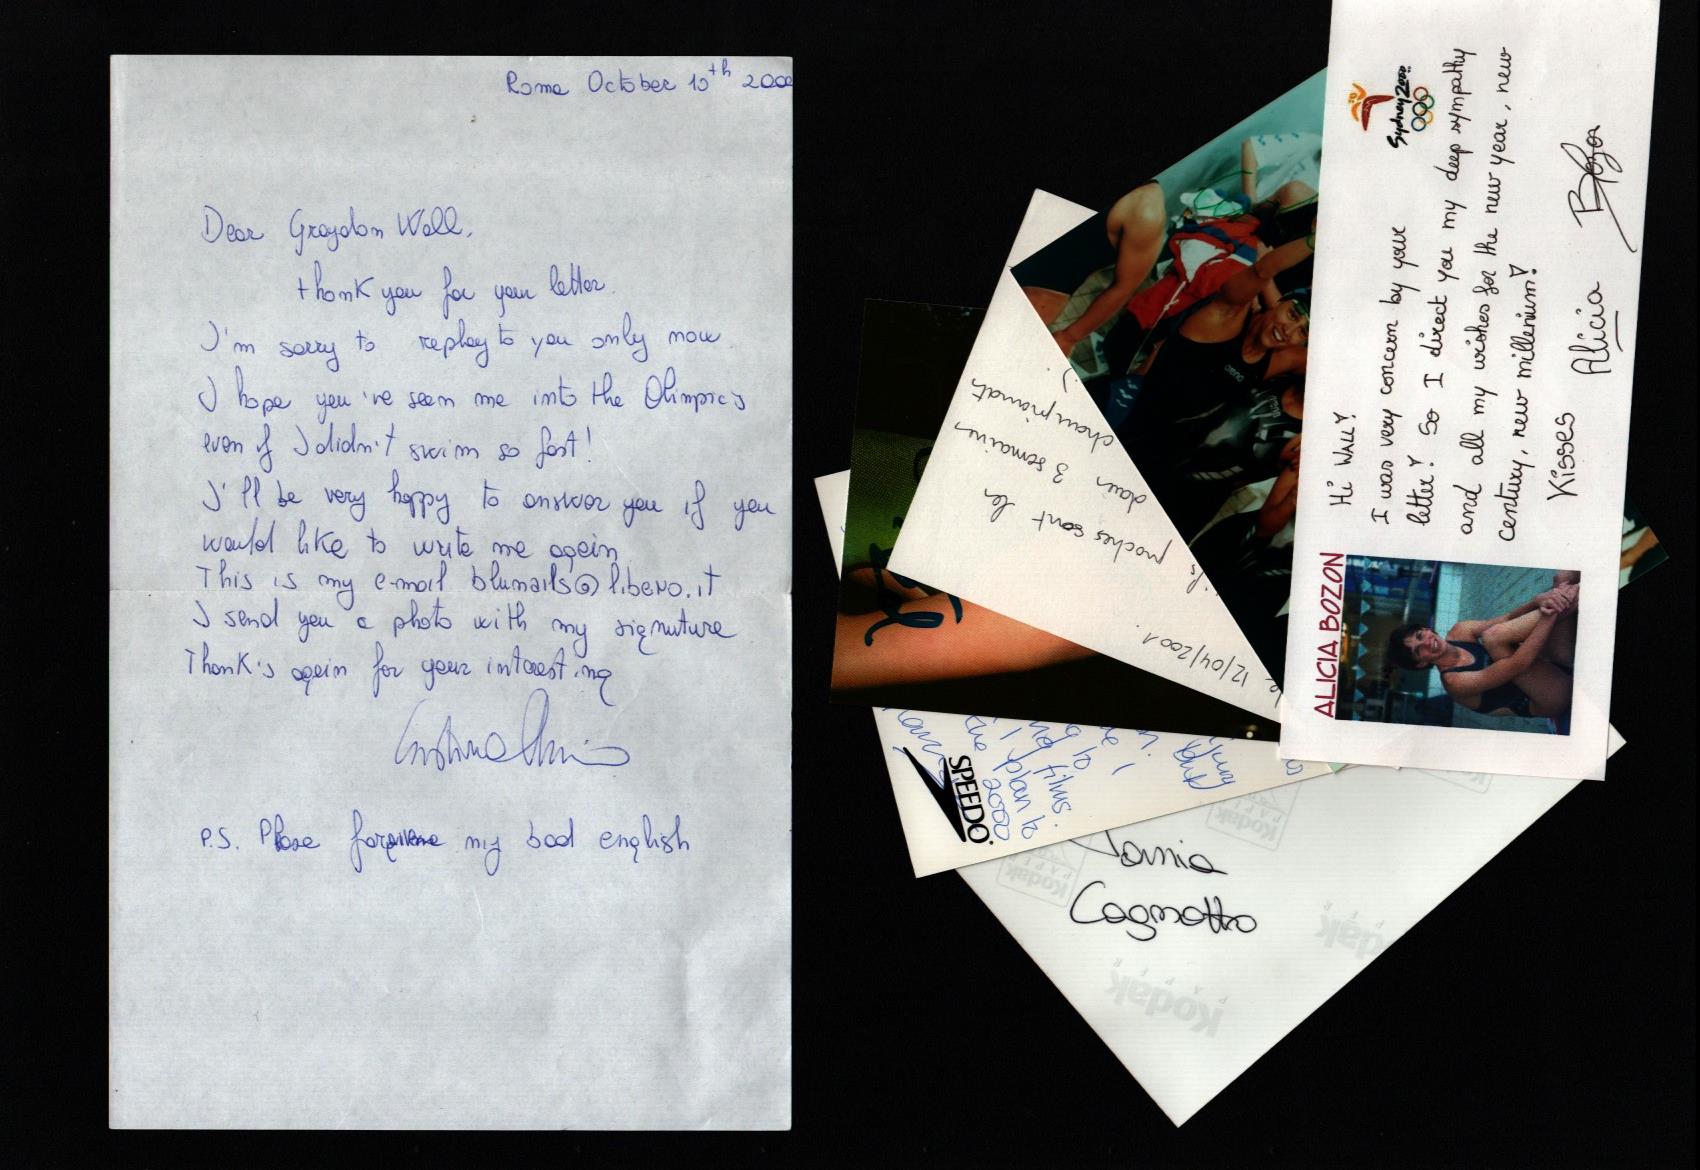 Roma October 10th 2000
Dear Graydon Wall,
thank you for your letter.
I'm sorry to replay to you only now
I hope you 've seen me into the Olimpic's
even if I didn't swim so fast!
I'll be very happy to answer you if you
would like to write me again
This is my e-mail blumails@libero.it
I send you a photo with my signuture
Thank's again for your interesting
P.S. Please my bad english
Sydney 2000
Hi WALL!
I was very concern by your
letter! So I direct you my deep sympathy
and all my wishes for the new year, new
century, new millenium!
Kisses Alicia Bozon
ALICIA BOZON
le 12/04/2001
proches sont les
dans 3 semaines
championnats
SPEEDO
2000
Tania
Cagnotto
Kodak
Kodak
Kodak
Kodak